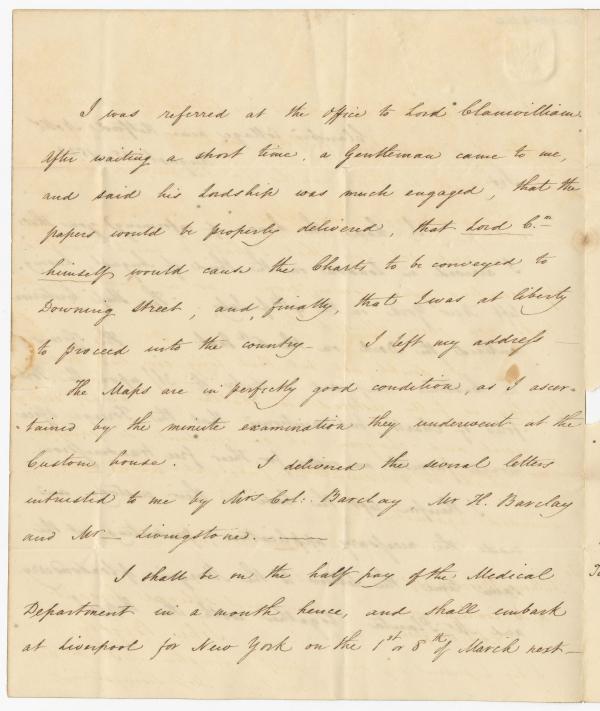 I was referred at the Office to Lord Clanwilliam.
After waiting a short time, a Gentleman came to me,
and said his Lordship was much engaged, that the
papers would be properly delivered, that Lord C.m
himself would cause the Charts to be conveyed to
Downing Street, and, finally, that I was at liberty
to proceed into the country — I left my address —
The Maps are in perfectly good condition, as I ascer-
tained by the minute examination they underwent at the
Custom house. I delivered the several letters
intrusted to me by Mrs Col: Barclay, Mr H. Barclay
and Mr — Livingstone. ———
I shall be on the half pay of the Medical
Department in a month hence, and shall embark
at Liverpool for New York on the 1st or 8th of March next —